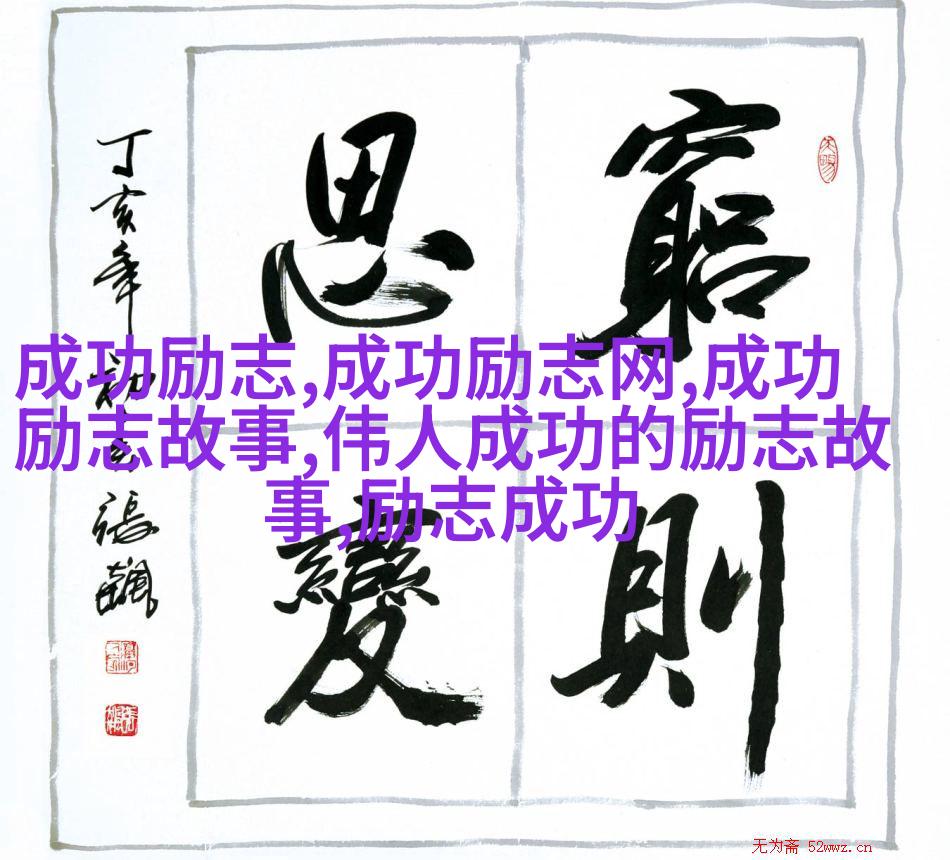 窮則
思變
丁亥年
張飆
成功励志,成功励志网,成功
励志故事,伟人成功的励志故
事,励志成功
无为斋 52wwz.cn